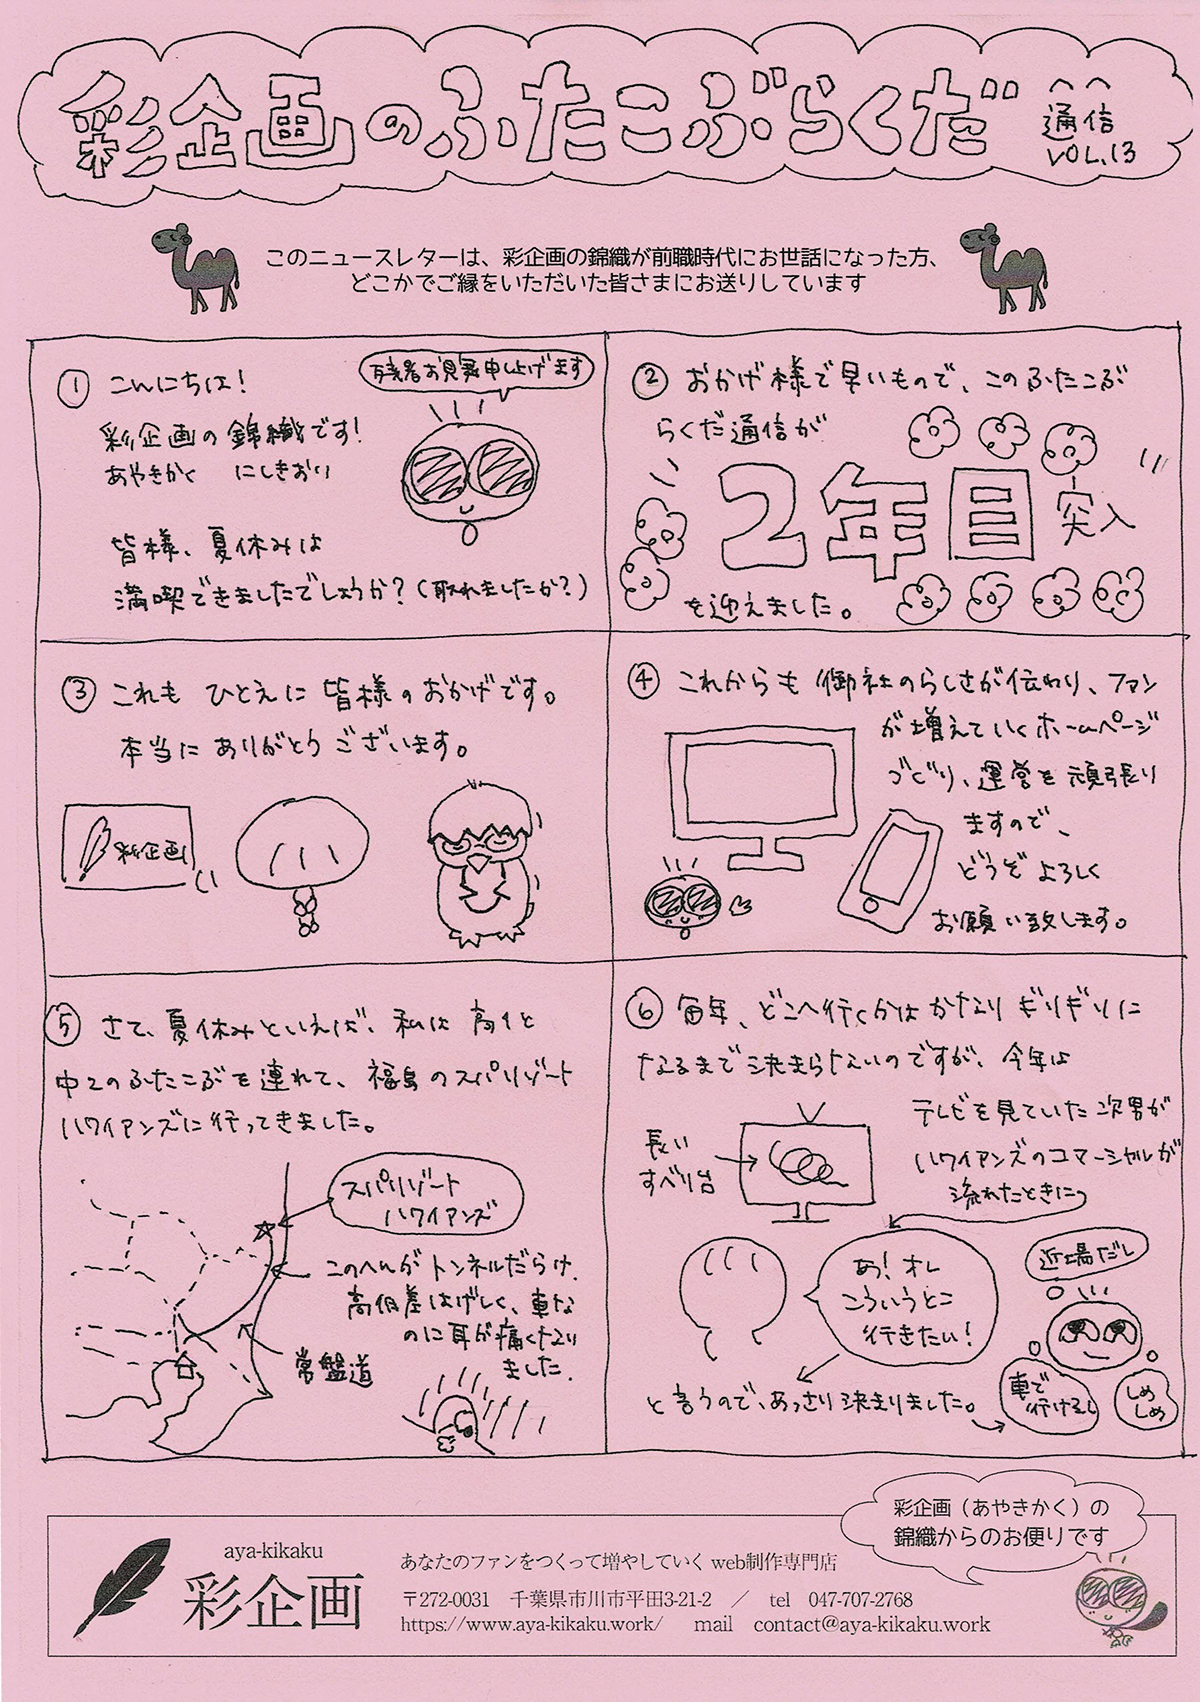 彩企画のふたこぶらくだ
通信
VOL.13
このニュースレターは、彩企画の錦織が前職時代にお世話になった方、
どこかでご縁をいただいた皆さまにお送りしています
① こんにちは!
残暑お見舞申し上げます
彩企画の錦織です!
あやきかく にしきおり
皆様、夏休みは
満喫できましたでしょうか?(取れましたか?)
② おかげ様で早いもので、このふたこぶ
らくだ通信が
2年目突入
を迎えました。
③ これも ひとえに 皆様のおかげです。
本当に ありがとう ございます。
彩企画
④ これからも 御社のらしさが伝わり、ファン
が増えていくホームページ
づくり、運営を頑張り
ますので、
どうぞ よろしく
お願い致します。
⑤ さて、夏休みといえば、私は 高1と
中2のふたこぶを連れて、福島のスパリゾート
ハワイアンズに行ってきました。
スパリゾート
ハワイアンズ
このへんがトンネルだらけ。
高低差はげしく、車な
のに耳が痛くなり
ました。
常盤道
⑥ 毎年、どこへ行くかはかなりギリギリに
なるまで決まらないのですが、今年は
テレビを見ていた次男が
ハワイアンズのコマーシャルが
流れたときに
長い
すべり台
あ!オレ
こういうとこ
行きたい!
近場だし
車で
行けるし
しめ
しめ
と言うので、あっさり決まりました。
彩企画(あやきかく)の
錦織からのお便りです
aya-kikaku
彩企画
あなたのファンをつくって増やしていくweb制作専門店
〒272-0031 千葉県市川市平田3-21-2 / tel 047-707-2768
https://www.aya-kikaku.work/ mail contact@aya-kikaku.work